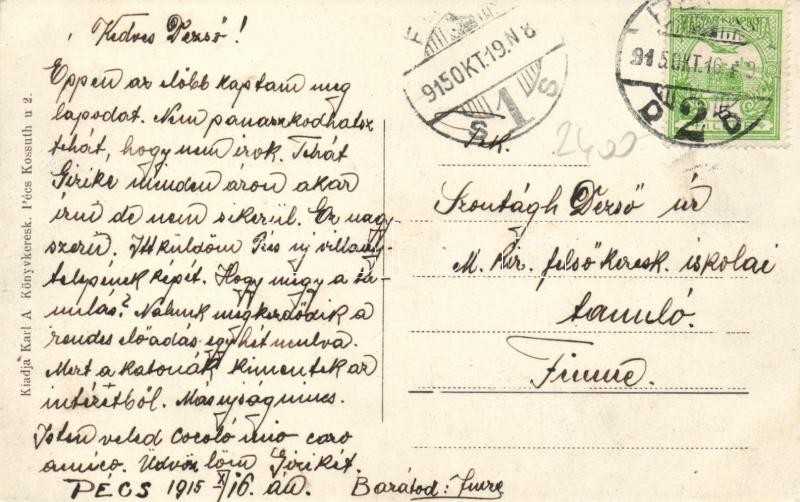 Kedves Dezső!
Eppen az előbb kaptam meg
lapodat. Nem panaszkodhatsz
tehát, hogy nem irok. Tehát
Girike minden áron akar
írni de nem sikerül. Ez nagy
szerű. Itt küldöm Pécs új villany-
telepének képét. Hogy megy a ta-
nulás? Nálunk megkezdődik a
rendes előadás egy hét mulva.
Mert a katonák kimentek az
intézetből. Más ujság nincs.
Isten veled Cocoló mio caro
amico. Üdvözlöm Girikét.
PÉCS 1915 X/16. án. Barátod: Imre
Kiadja Karl A Könyvkeresk. Pécs Kossuth u 2.
915 OKT. 19. N 8
1
915 OKT. 16
2
MAGYAR KIR. POSTA
2400
Szontágh Dezső úr
M. kir. felső keresk. iskolai
tanuló.
Fiume.